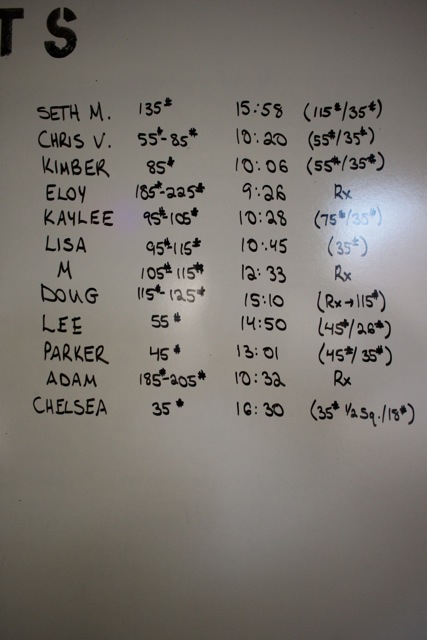 TS
SETH M. 135# 15:58 (115#/35#)
CHRIS V. 55#-85# 10:20 (55#/35#)
KIMBER 85# 10:06 (55#/35#)
ELOY 185#-225# 9:26 Rx
KAYLEE 95#105# 10:28 (75#/35#)
LISA 95#115# 10:45 (35#)
M 105#115# 12:33 Rx
DOUG 115#-125# 15:10 (Rx→115#)
LEE 55# 14:50 (45#/26#)
PARKER 45# 13:01 (45#/35#)
ADAM 185#-205# 10:32 Rx
CHELSEA 35# 16:30 (35# 1/2 Sq./18#)